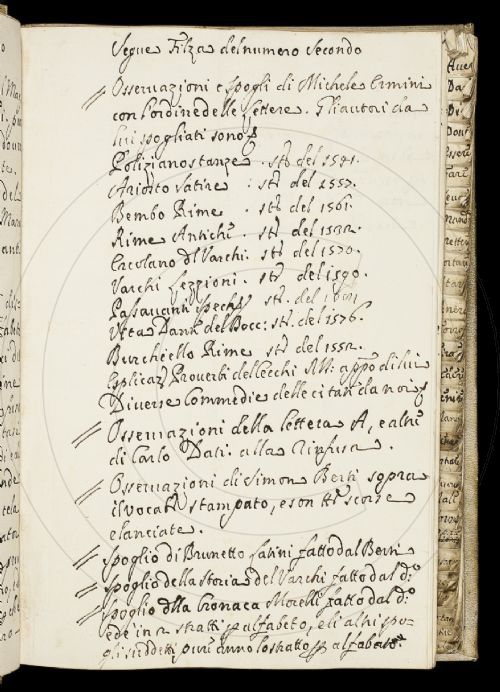 Segue Filza del numero Secondo
Osseruazioni e spogli di Michele Ermini
con l'ordine delle lettere. Gli autori da
lui spogliati sono
Poliziano stanze . st. del 1541.
Ariosto Satire : st. del 1557.
Bembo Rime . st. del 1561.
Rime Antiche . st. del 1532.
Ercolano d Varchi. st. del 1570.
Varchi Lezzioni. st. del 1590.
Passauanti Specch. st. del
Vita Dant. del Bocc: st. del 1576.
Burchiello Rime st. del 1552.
Esplicaz. Prouerbi del Cecchi MS: app.o di lui
Diuerse Commedie delle citati da noi
Osseruazioni della lettera A, e altri
di Carlo Dati. alla Rinfusa.
Osseruazioni di Simon Berti sopra
il Vocab. stampato, e son scorse
e lanciate.
Spoglio di Brunetto Latini fatto dal Berti
Spoglio della Storia del Varchi fatto dal d.o
Spoglio dlla Cronaca Morelli fatto dal d.o
ed è in 2 stratti p alfabeto, e li altri spo-
gli suddetti pure anno lo stratto p alfabeto.